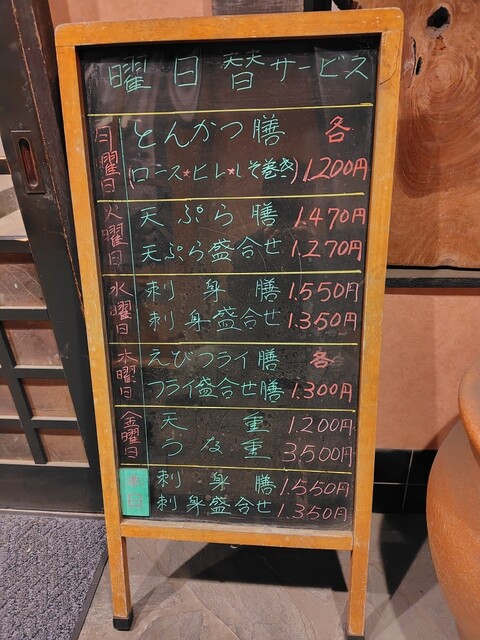 曜日替サービス
日曜日
とんかつ膳 各
(ロース★ヒレ★しそ巻き) 1.200円
火曜日
天ぷら膳 1.470円
天ぷら盛合せ 1.270円
水曜日
刺身膳 1.550円
刺身盛合せ 1.350円
木曜日
えびフライ膳 各
フライ盛合せ膳 1.300円
金曜日
天重 1.200円
うな重 3500円
本日
刺身膳 1.550円
刺身盛合せ 1.350円